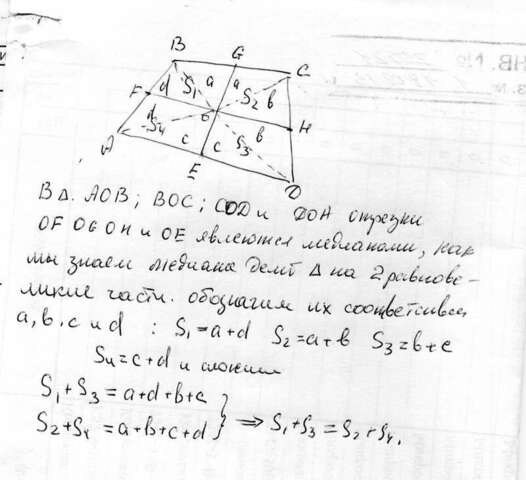 B G C
F d S₁ a a S₂ b H
d S₄ O b
A c c S₃
E D
В Δ. AOB; BOC; COD и DOA отрезки
OF OG OH и OE явлеются медианами, как
мы знаем медиана делит Δ на 2 равнове-
ликие части. обозначим их соответсивен
a, b, c и d : S₁=a+d S₂=a+b S₃=b+c
S₄=c+d и сложим
S₁+S₃=a+d+b+c
S₂+S₄=a+b+c+d } ⇒ S₁+S₃=S₂+S₄.